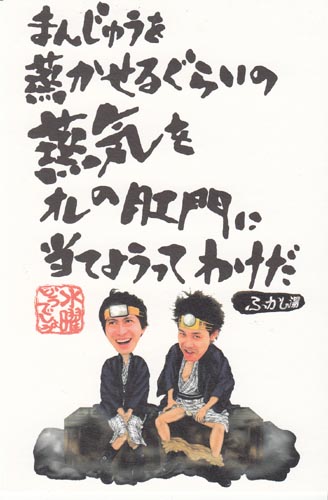 まんじゅうを
蒸かせるぐらいの
蒸気を
オレの肛門に
当てようってわけだ
ふかし湯
水曜
どうでしょう